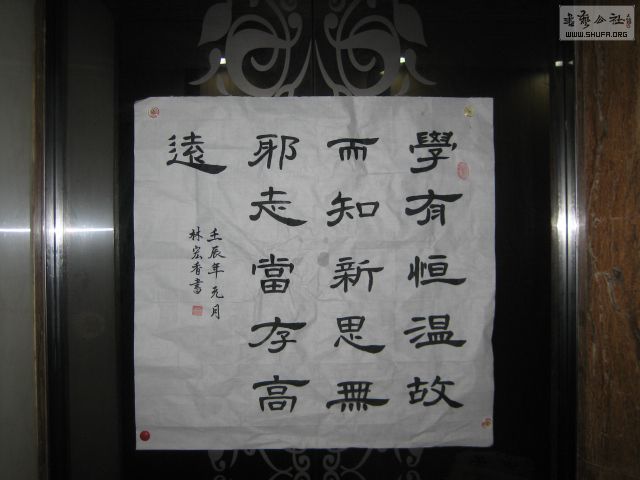 學有恒温故
而知新思無
邪志當存高
遠
壬辰年元月
林宏香書
書藝公社
WWW.SHUFA.ORG